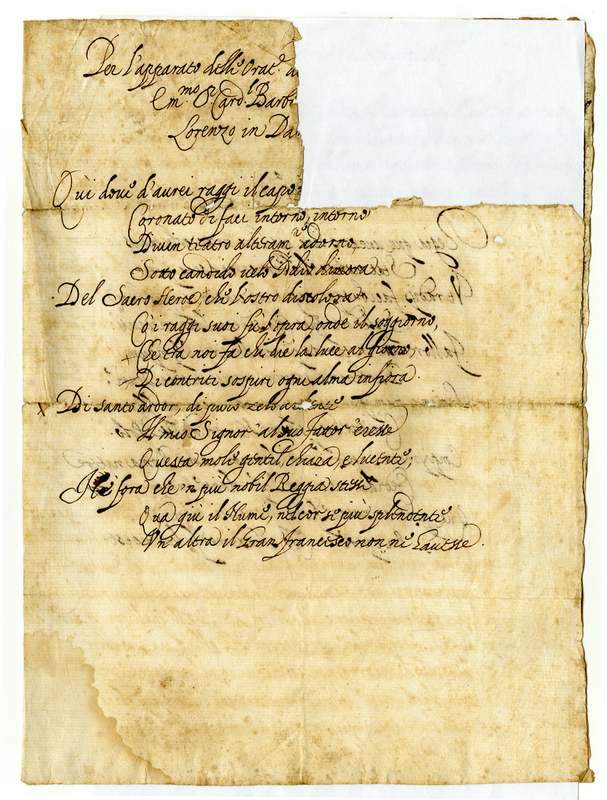 Per l'apparato delle Orat.
Em.mo Sr Card.l Barb
Lorenzo in Da
Qui dove d'aurei raggi il capo
Coronato di faci intorno, intorno
Divin teatro alteram.te adorno
Sotto candido velo Iddio dimora
Del Sacro Heroe, che l'ostro discolora
Co i raggi suoi fù l'opra, onde il soggiorno,
Che trà noi fa chi diè la luce al giorno,
Di contriti sospiri ogni alma infiora.
Di santo ardor, di puro zelo ardente
Il mio Signor al suo fattor eresse
Questa mole gentil, chiara, e lucente;
Nè fora che n più nobil Reggia stesse
Qua giù il Nume, nel cor se più splendente
Un altra il Gran Francesco non n'havesse.